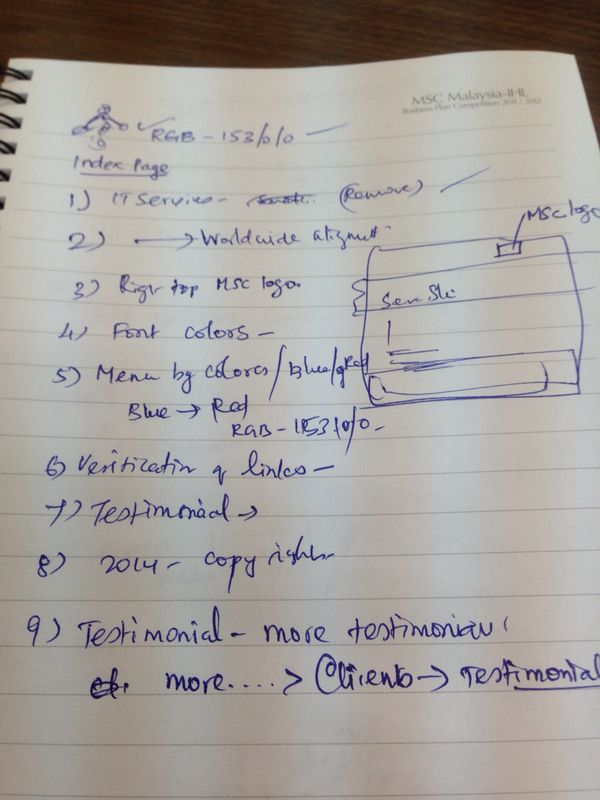 MSC Malaysia-IHL
Business Plan Competition 2011 / 2012
RGB - 153/0/0 -
Index Page
1) IT Service - (Remove)
2) → Worldwide
MSC logo
3) Right top MSC logo
4) Font colors -
5) Menu bg colores / Blue / Red
Blue → Red
RGB - 153/0/0 -
6) Verification of links -
7) Testimonial →
8) 2014 - copy right
9) Testimonial - more testimonial
more....> Clients → Testimonial